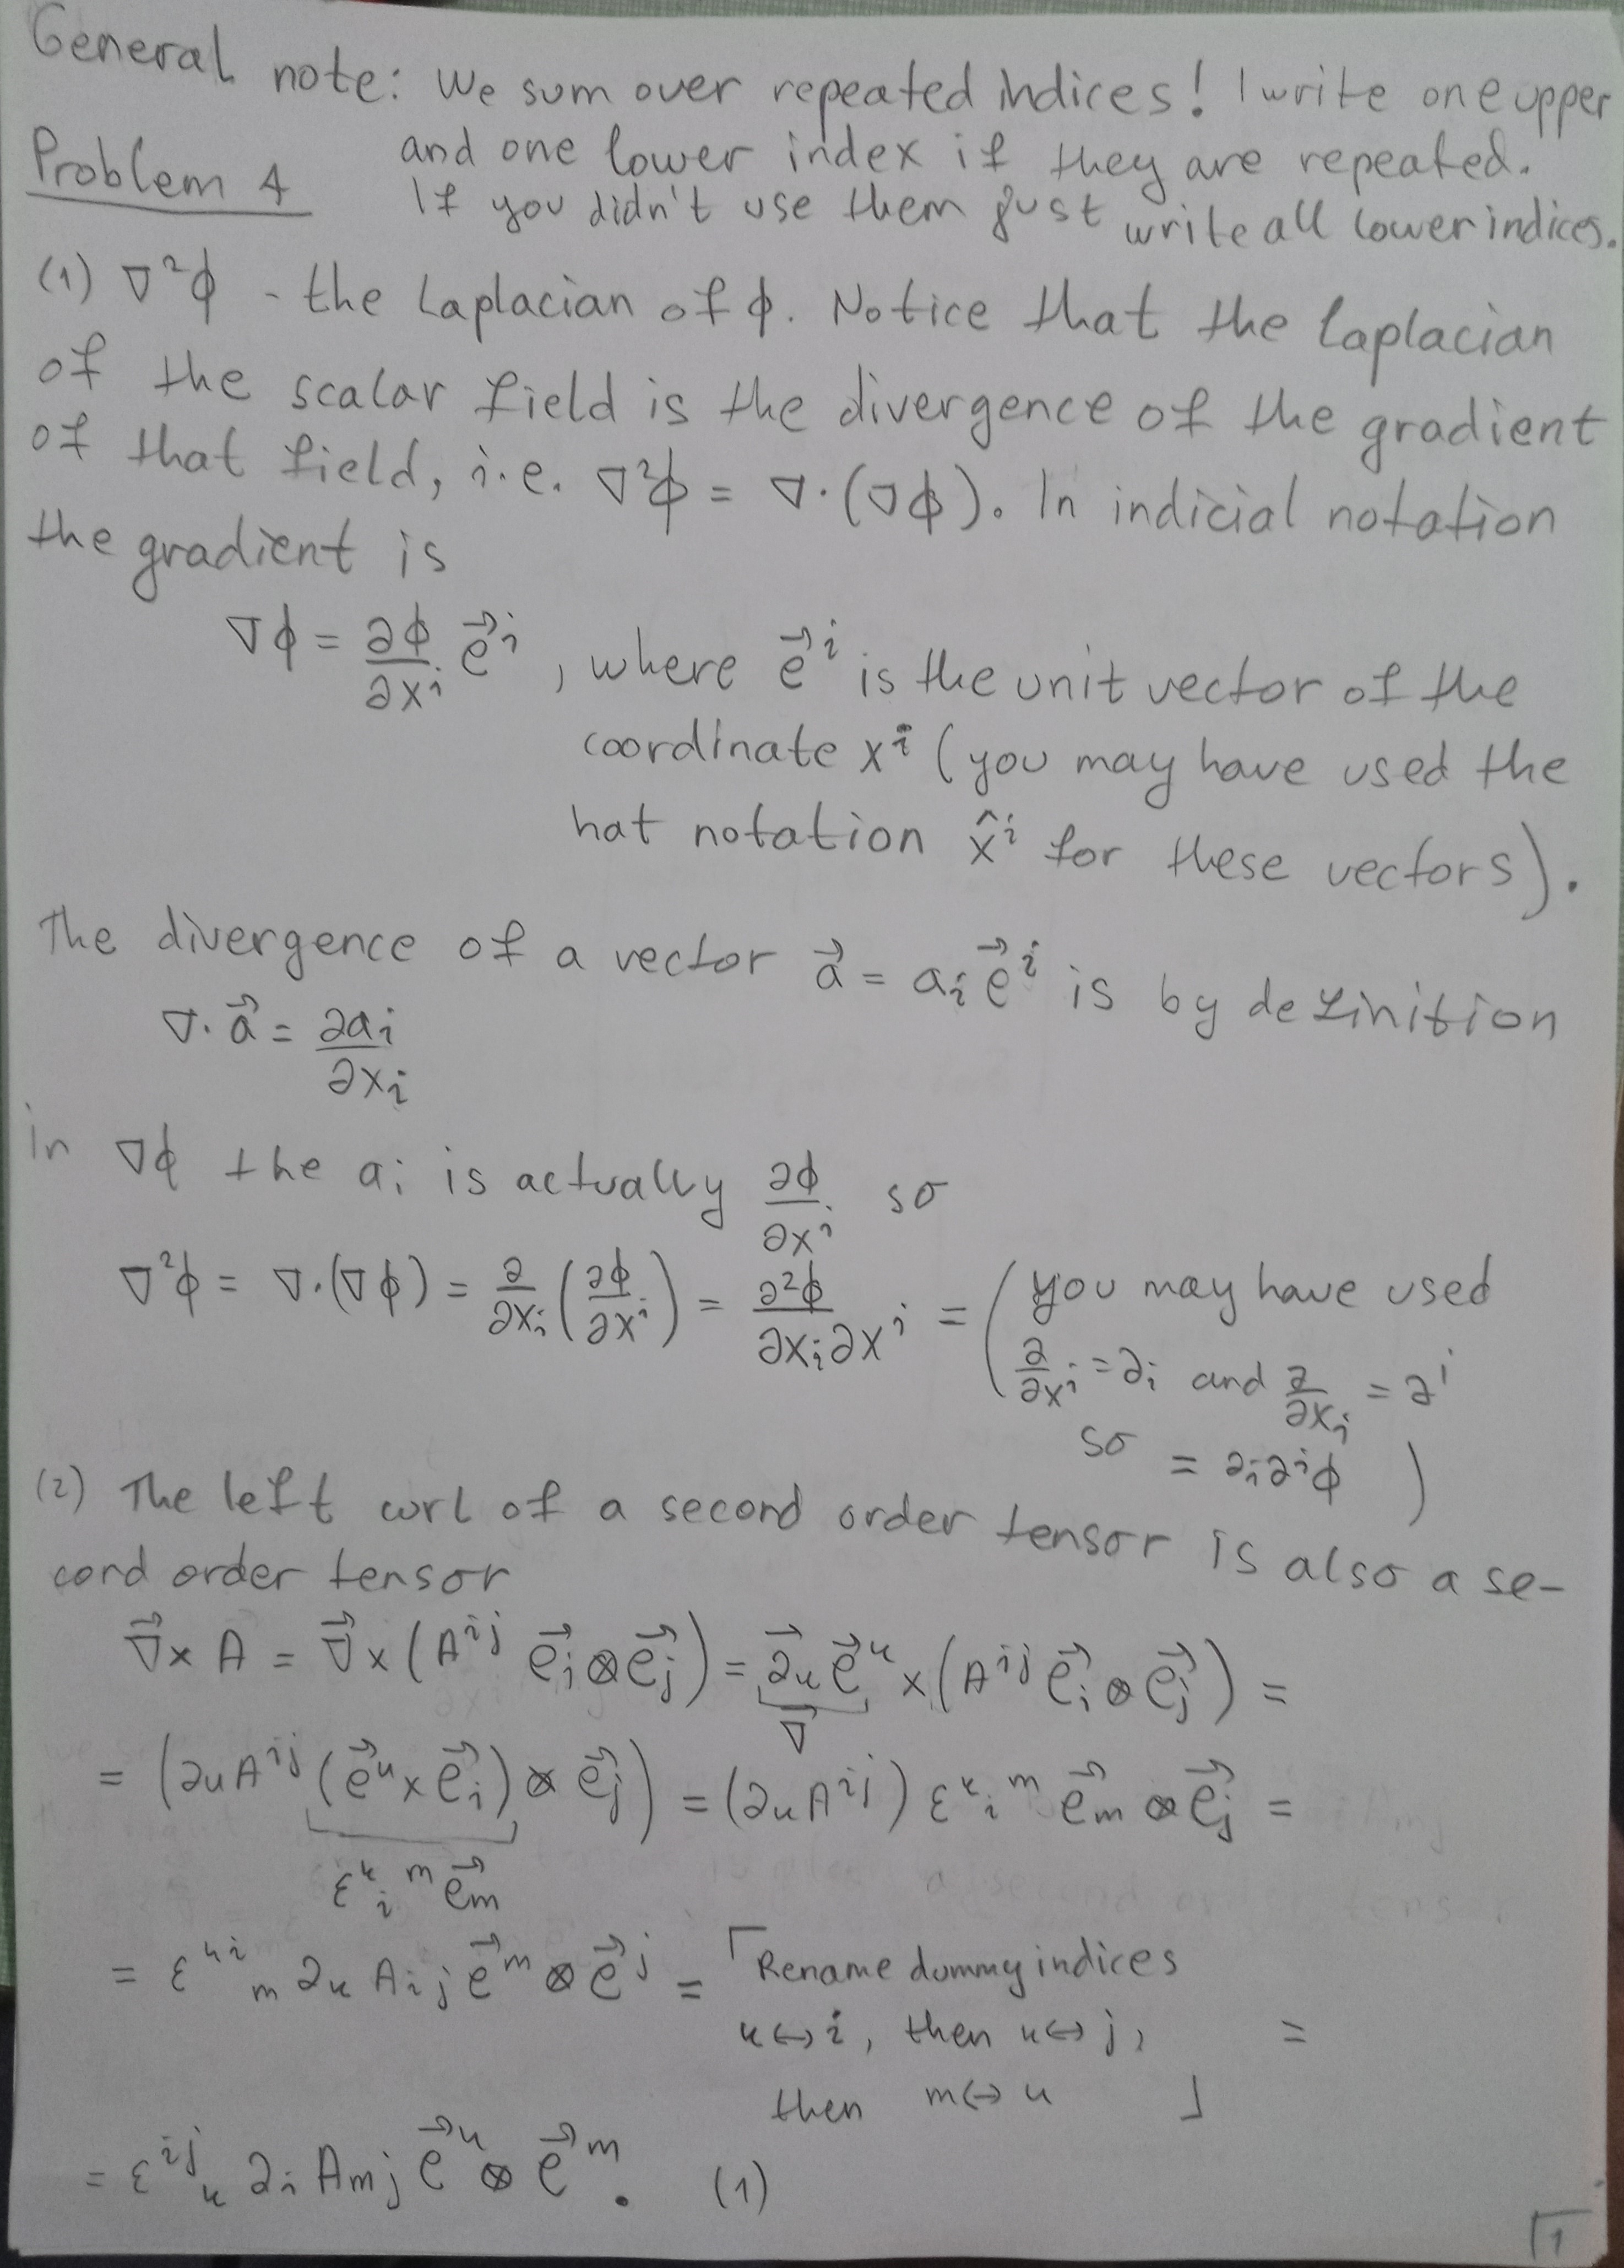 General note: We sum over repeated indices! I write one upper
and one lower index if they are repeated.
Problem 4
If you didn't use them just write all lower indices.
(1) ∇²ϕ - the Laplacian of ϕ. Notice that the Laplacian
of the scalar field is the divergence of the gradient
of that field, i.e. ∇²ϕ = ∇·(∇ϕ). In indicial notation
the gradient is
∇ϕ = ∂ϕ/∂xⁱ e⃗ⁱ, where e⃗ⁱ is the unit vector of the
coordinate xⁱ (you may have used the
hat notation x̂ⁱ for these vectors).
The divergence of a vector a⃗ = aᵢ e⃗ⁱ is by definition
∇·a⃗ = ∂aᵢ/∂xᵢ
in ∇ϕ the aᵢ is actually ∂ϕ/∂xⁱ so
∇²ϕ = ∇·(∇ϕ) = ∂/∂xᵢ (∂ϕ/∂xⁱ) = ∂²ϕ/∂xᵢ∂xⁱ = (you may have used
∂/∂xⁱ = ∂ᵢ and ∂/∂xᵢ = ∂ⁱ
so = ∂ᵢ∂ⁱϕ)
(2) The left curl of a second order tensor is also a se-
cond order tensor
∇⃗ × A = ∇⃗ × (Aⁱʲ e⃗ᵢ ⊗ e⃗ⱼ) = ∂⃗ₖ e⃗ᵏ × (Aⁱʲ e⃗ᵢ ⊗ e⃗ⱼ) =
∇⃗
= (∂ₖAⁱʲ (e⃗ᵏ × e⃗ᵢ) ⊗ e⃗ⱼ) = (∂ₖAⁱʲ) εᵏᵢᵐ e⃗ₘ ⊗ e⃗ⱼ =
εᵏᵢᵐ e⃗ₘ
= εᵏⁱₘ ∂ₖ Aᵢⱼ e⃗ᵐ ⊗ e⃗ʲ = ⌈Rename dummy indices
k↔i, then k↔j, =
then m↔k ⌋
= εⁱʲₖ ∂ᵢ Aₘⱼ e⃗ᵏ ⊗ e⃗ᵐ. (1)
1